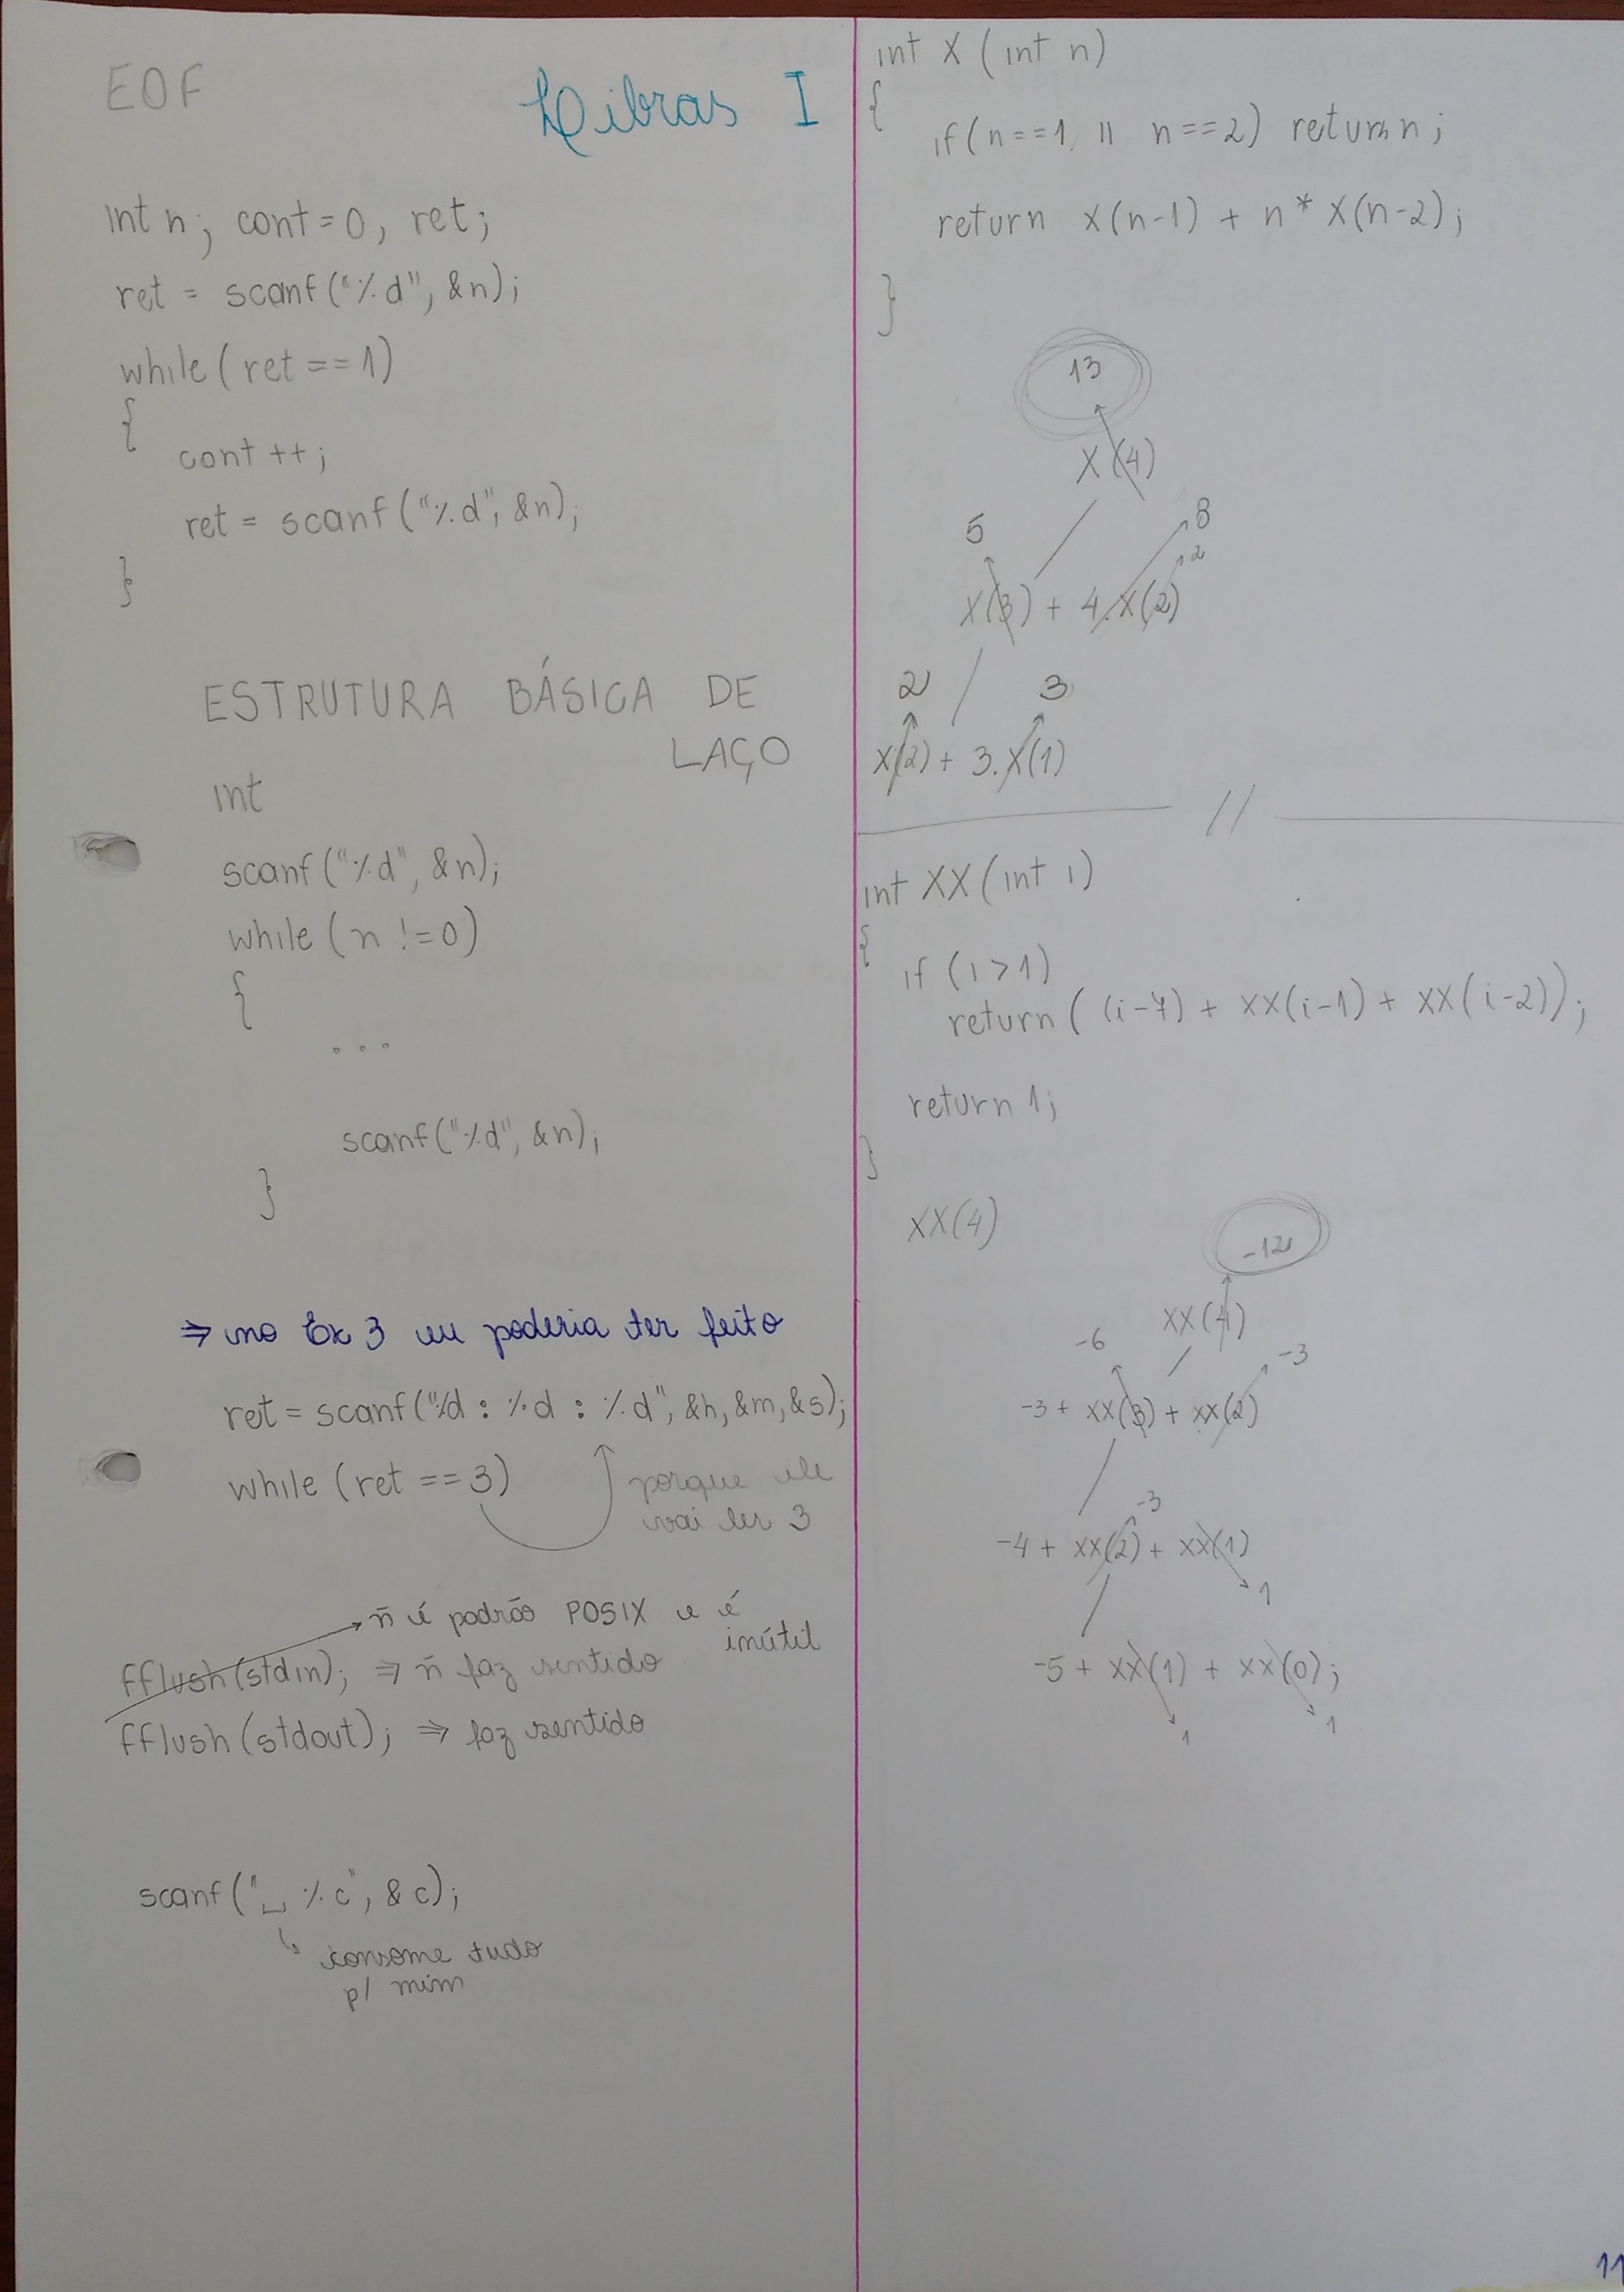 EOF
Libras I
int n; cont = 0, ret;
ret = scanf("%d", &n);
while (ret == 1)
{
cont ++;
ret = scanf("%d", &n);
}
ESTRUTURA BÁSICA DE
LAÇO
int
scanf("%d", &n);
while (n != 0)
{
...
scanf("%d", &n);
}
⇒ no Ex 3 eu poderia ter feito
ret = scanf("%d : %d : %d", &h, &m, &s);
while (ret == 3)
porque ele
vai ler 3
ñ é padrão POSIX e é
inútil
fflush(stdin); ⇒ ñ faz sentido
fflush(stdout); ⇒ faz sentido
scanf("␣ %c", &c);
consome tudo
p/ mim
int X (int n)
{
if (n == 1 || n == 2) return n;
return X(n-1) + n * X(n-2);
}
13
X(4)
5 8
2
X(3) + 4.X(2)
2 3
X(2) + 3.X(1)
//
int XX (int i)
{
if (i > 1)
return ( (i-7) + XX(i-1) + XX(i-2));
return 1;
}
XX(4)
-12
XX(4)
-6 -3
-3 + XX(3) + XX(2)
-3
-4 + XX(2) + XX(1)
1
-5 + XX(1) + XX(0);
1 1
11